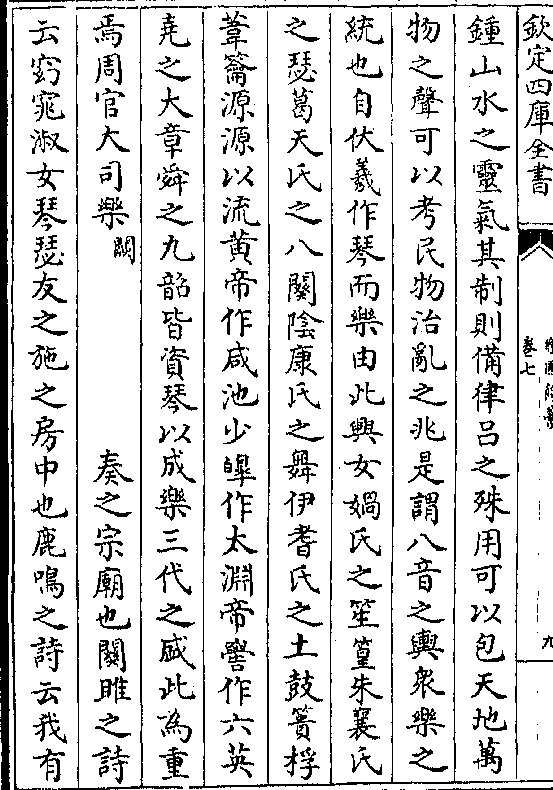 欽定四庫全書
卷七
九
鍾山水之靈氣其制則備律呂之殊用可以包天地萬
物之聲可以考民物治亂之兆是謂八音之輿衆樂之
統也自伏羲作琴而樂由此興女媧氏之笙篁朱襄氏
之瑟葛天氏之八闋陰康氏之舞伊耆氏之土鼓蕢桴
葦籥源源以流黄帝作咸池少皥作太淵帝嚳作六英
堯之大章舜之九韶皆資琴以成樂三代之盛此為重
焉周官大司樂闕　　　　　奏之宗廟也關雎之詩
云窈窕淑女琴瑟友之施之房中也鹿鳴之詩云我有